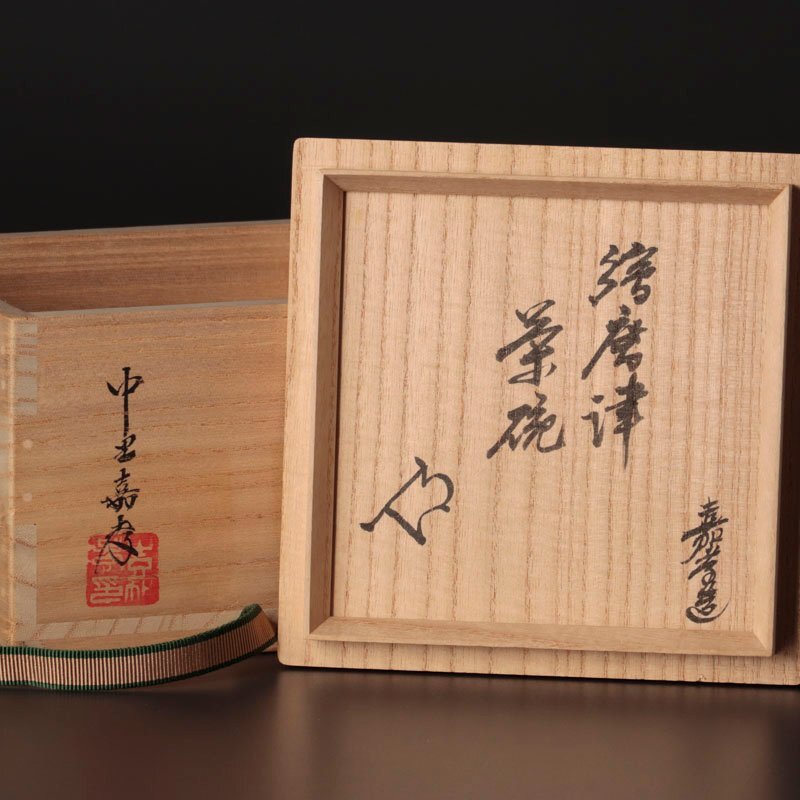 繪唐津
茶碗
嘉孝造
中里嘉孝